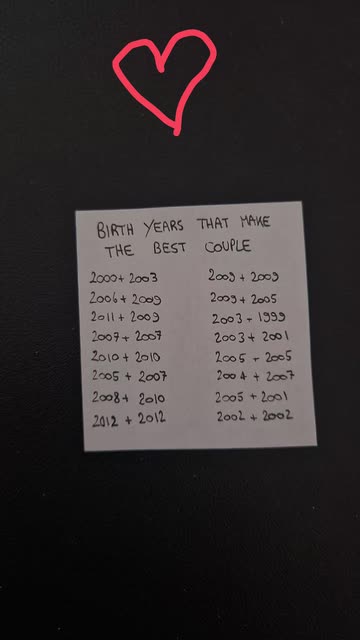 BIRTH YEARS THAT MAKE
THE BEST COUPLE
2000 + 2003
2006 + 2009
2011 + 2009
2007 + 2007
2010 + 2010
2005 + 2007
2008 + 2010
2012 + 2012
2009 + 2009
2009 + 2005
2003 - 1999
2003 + 2001
2005 - 2005
2004 + 2007
2005 + 2001
2002 + 2002